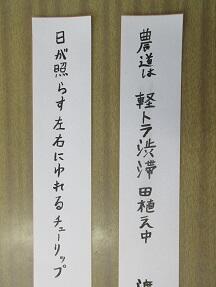 農道は 軽トラ渋滞 田植え中
日が照らす 左右にゆれる チューリップ